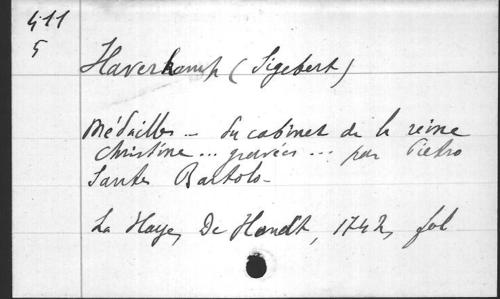 411
5
Haverkamp (Sigebert)
Médailles - du cabinet de la reine
Christine ... gravées ... par Pietro
Santes Bartolo -
La Haye, De Hondt, 1742, fol